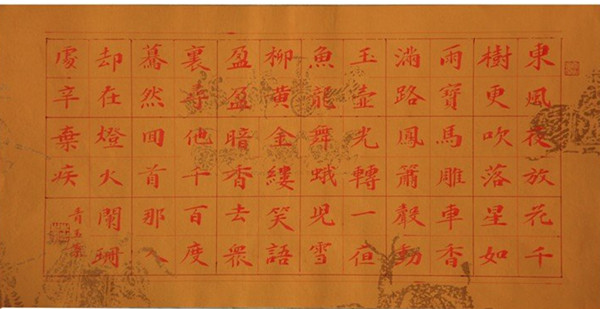 東風夜放花千
樹更吹落星如
雨寶馬雕車香
滿路鳳簫聲動
玉壺光轉一亱
魚龍舞蛾兒雪
柳黃金縷笑語
盈盈暗香去衆
裏尋他千百度
驀然回首那人
却在燈火闌珊
處辛棄疾
青玉案